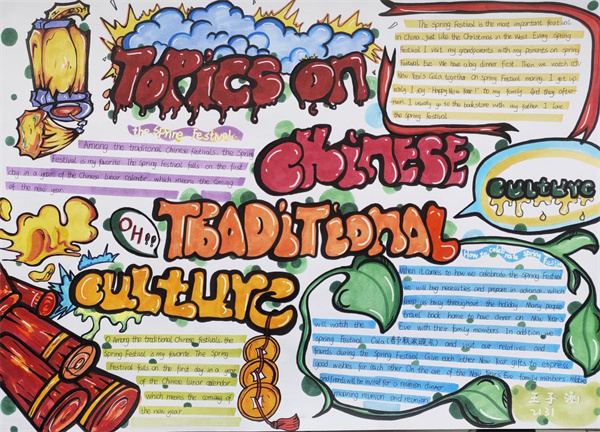 TOPiCS ON
CHiNESE
TRADiTiONAL
CULTURE
OH!!
CULTURE
the Spring Festival
Among the traditional Chinese festivals, the Spring
Festival is my favorite. The Spring Festival falls on the first
day in a year of the Chinese lunar calendar, which means the coming
of the new year.
The Spring Festival is the most important festival
in China, just like the Christmas in the West. Every Spring
Festival I visit my grandparents with my parents on Spring
Festival Eve. We have a big dinner first. Then we watch
New Year's Gala together. On Spring Festival morning, I get up
early, I say "Happy New Year!" to my family, and they
I usually go to the bookstore with my father. I love
the Spring Festival
O Among the traditional Chinese festivals, the
Spring Festival is my favorite. The Spring
Festival falls on the first day in a year
of the Chinese lunar calendar
which means the coming of
the new year.
How to celebrate Spring
When it comes to how we celebrate the Spring Festival
we will buy necessities and prepare in advance, which
keep us busy throughout the holiday. Many people
travel back home to have dinner on New Year's
Eve with their family members. In addition, we
will watch the
Spring Festival Gala and our relatives and
friends during the Spring Festival. Give each other New Year gifts to express
good wishes for each other. On the eve of the New Year's Eve, family members
and friends will be invited for a reunion dinner
meaning reunion and
2131